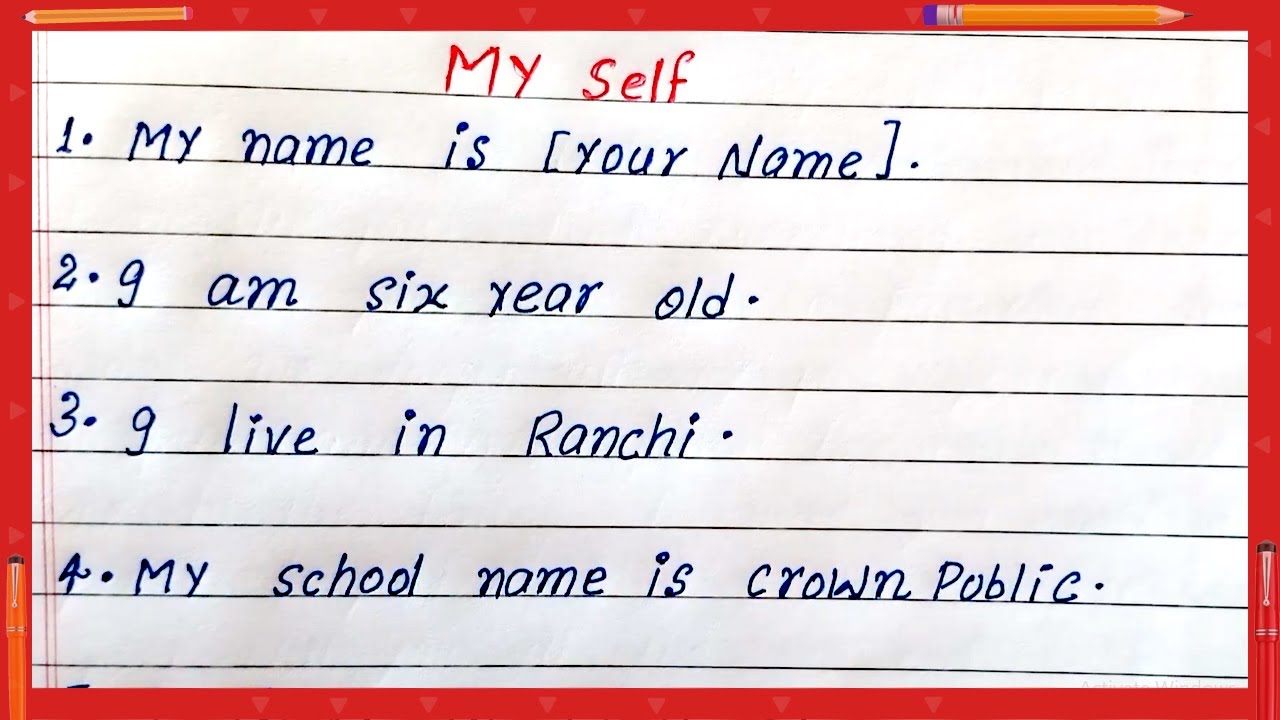 My Self
1. My name is [Your Name].
2. I am six year old.
3. I live in Ranchi.
4. My school name is crown Poblic.
Activate Windows